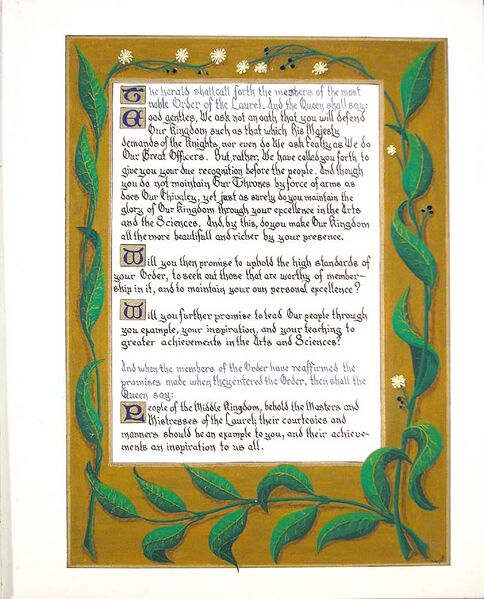 The herald shall call forth the members of the most
noble Order of the Laurel. And the Queen shall say:
Good gentles, We ask not an oath that you will defend
Our Kingdom such as that which His Majesty
demands of the Knights, nor even do We ask fealty as We do
Our Great Officers. But, rather, We have called you forth to
give you your due recognition before the people. And though
you do not maintain Our Thrones by force of arms as
does Our Chivalry, yet just as surely do you maintain the
glory of Our Kingdom through your excellence in the Arts
and the Sciences. And, by this, do you make Our Kingdom
all the more beautifull and richer by your presence.
Will you then promise to uphold the high standards of
your Order, to seek out those that are worthy of member-
ship in it, and to maintain your own personal excellence?
Will you further promise to lead Our people through
you example, your inspiration, and your teaching to
greater achievements in the Arts and Sciences?
And when the members of the Order have reaffirmed the
promises made when they entered the Order, then shall the
Queen say:
People of the Middle Kingdom, behold the Masters and
Mistresses of the Laurel; their courtesies and
manners should be an example to you, and their achieve-
ments an inspiration to us all.